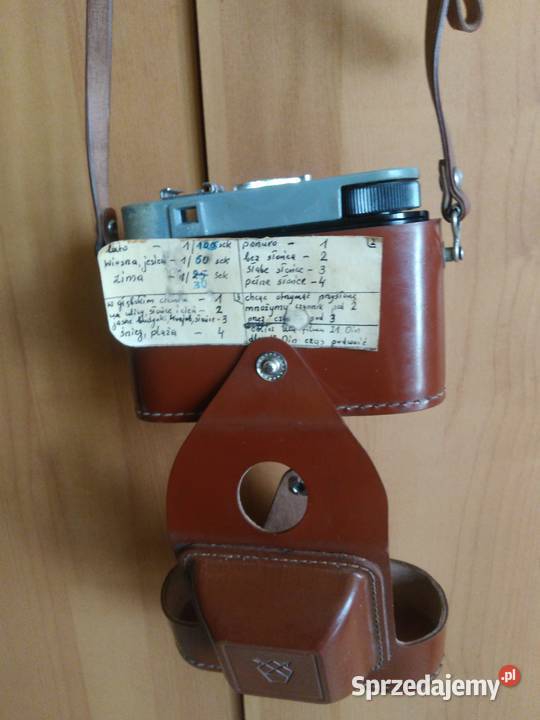 lato - 1/100 sek
wiosna, jesień - 1/60 sek
zima - 1/30 sek
ponuro - 1
bez słońca - 2
słabe słońce - 3
pełne słońce - 4
w głębokim cieniu - 1
na ulicy, słońce i cień - 2
jasne budynki, słońce - 3
śnieg, plaża - 4
chcąc otrzymać przysłonę
mnożymy czynnik pod 2
przez pod 3
filmu 21 Din
Din czas podwoić
Sprzedajemy.pl